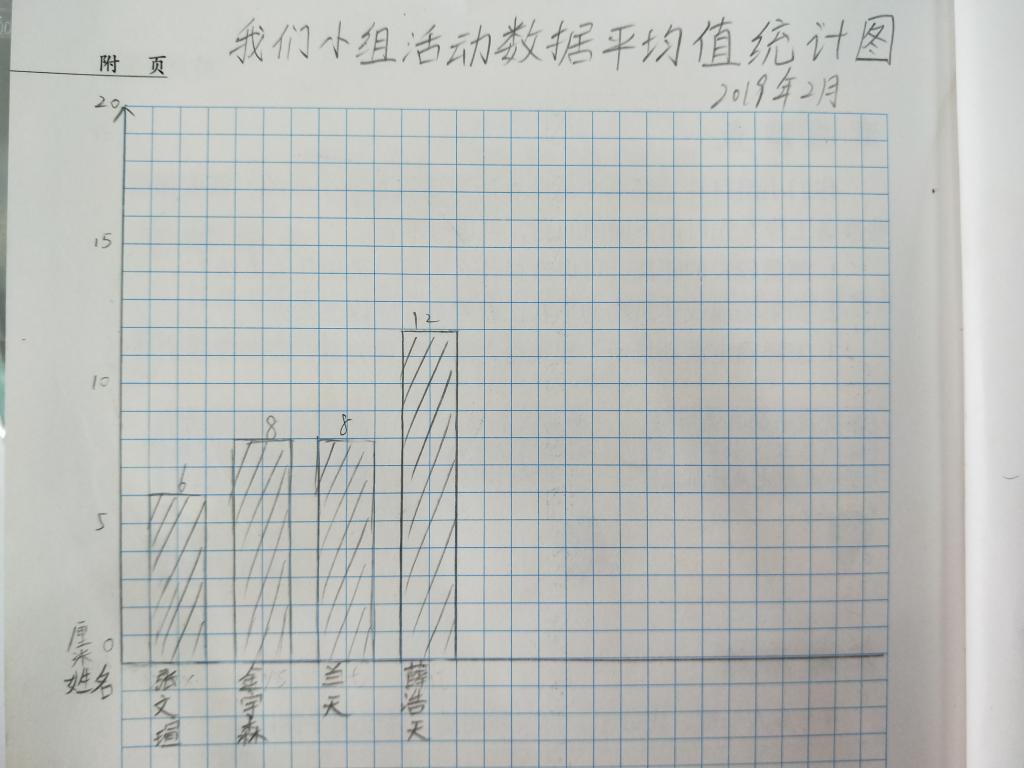 附 页
我们小组活动数据平均值统计图
2019年2月
20
15
10
5
0
12
8
8
6
厘米
姓名
张文瑄
金宇森
兰天
薛浩天